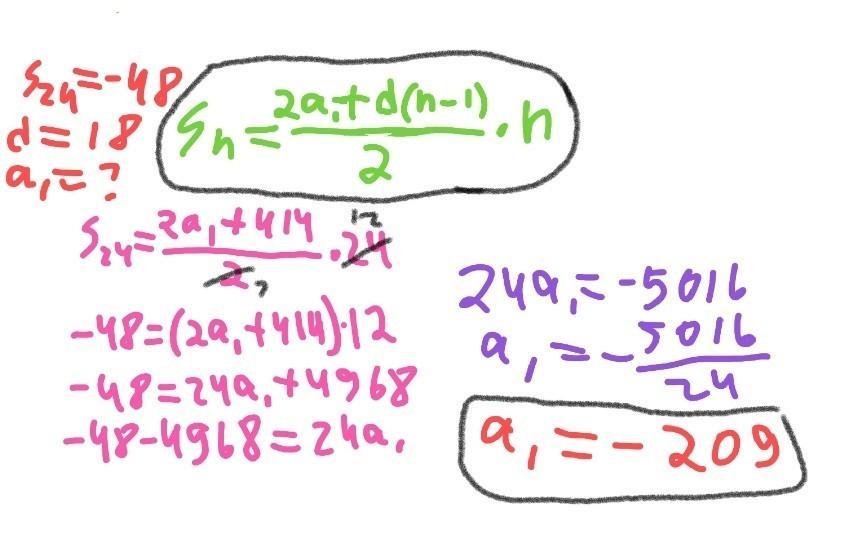 S₂₄=-48
d=18
a₁=?
Sₙ=(2a₁+d(n-1))/2·n
S₂₄=(2a₁+414)/2·24 12
-48=(2a₁+414)·12
-48=24a₁+4968
-48-4968=24a₁
24a₁=-5016
a₁=-5016/24
a₁=-209